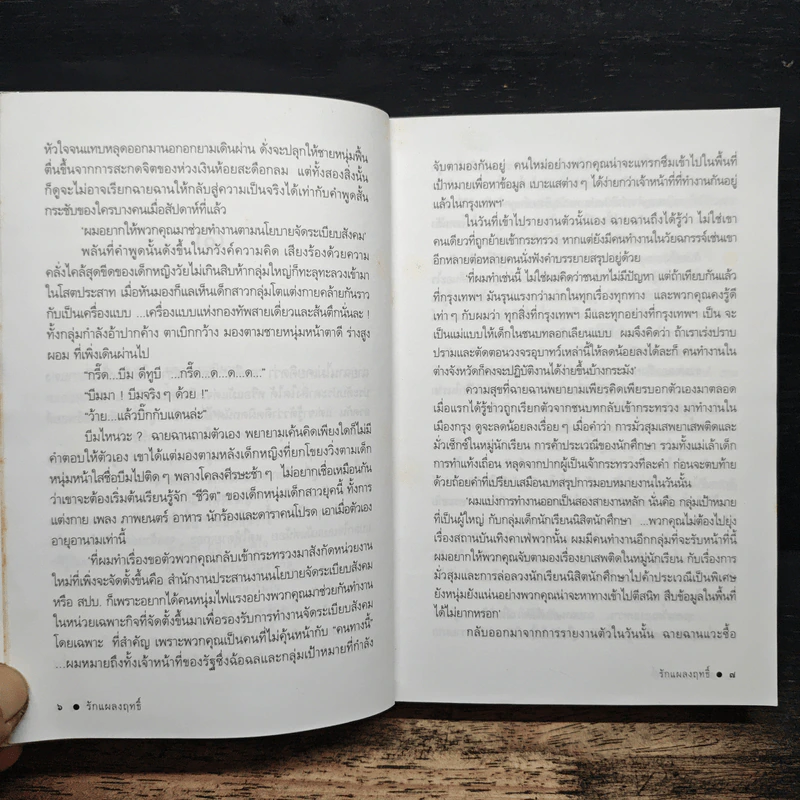 หัวใจจนแทบหลุดออกมานอกอกยามเดินผ่าน ดั่งจะปลุกให้ชายหนุ่มฟื้น
ตื่นขึ้นจากการสะกดจิตของห่วงเงินห้อยสะดือกลม แต่ทั้งสองสิ่งนั้น
ก็ดูจะไม่อาจเรียกฉายฉานให้กลับสู่ความเป็นจริงได้เท่ากับคำพูดสั้น
กระชับของใครบางคนเมื่อสัปดาห์ที่แล้ว
'ผมอยากให้พวกคุณมาช่วยทำงานตามนโยบายจัดระเบียบสังคม'
พลันที่คำพูดนั้นดังขึ้นในภวังค์ความคิด เสียงร้องด้วยความ
คลั่งไคล้สุดขีดของเด็กหญิงวัยไม่เกินสิบห้ากลุ่มใหญ่ก็ทะลุทะลวงเข้ามา
ในโสตประสาท เมื่อหันมองก็แลเห็นเด็กสาวกลุ่มโตแต่งกายคล้ายกันราว
กับเป็นเครื่องแบบ ...เครื่องแบบแห่งกองทัพสายเดี่ยวและส้นตึกนั่นละ !
ทั้งกลุ่มกำลังอ้าปากค้าง ตาเบิกกว้าง มองตามชายหนุ่มหน้าตาดี ร่างสูง
ผอม ที่เพิ่งเดินผ่านไป
"กรี๊ด...บีม ดีทูบี ...กรี๊ด...ด...ด...ด..."
"บีมมา ! บีมจริงๆ ด้วย !"
"ว้าย...แล้วบิ๊กกับแดนล่ะ"
บีมไหนวะ ? ฉายฉานถามตัวเอง พยายามค้นคิดเพียงใดก็ไม่มี
คำตอบให้ตัวเอง เขาได้แต่มองตามหลังเด็กหญิงที่ยกโขยงวิ่งตามเด็ก
หนุ่มหน้าใสชื่อบีมไปติด ๆ พลางโคลงศีรษะช้า ๆ ไม่อยากเชื่อเหมือนกัน
ว่าเขาจะต้องเริ่มต้นเรียนรู้จัก "ชีวิต" ของเด็กหนุ่มเด็กสาวยุคนี้ ทั้งการ
แต่งกาย เพลง ภาพยนตร์ อาหาร นักร้องและดาราคนโปรด เอาเมื่อตัวเอง
อายุอานามเท่านี้
'ที่ผมทำเรื่องขอตัวพวกคุณกลับเข้ากระทรวงมาสังกัดหน่วยงาน
ใหม่ที่เพิ่งจะจัดตั้งขึ้นคือ สำนักงานประสานงานนโยบายจัดระเบียบสังคม
หรือ สปบ. ก็เพราะอยากได้คนหนุ่มไฟแรงอย่างพวกคุณมาช่วยกันทำงาน
ในหน่วยเฉพาะกิจที่จัดตั้งขึ้นมาเพื่อรองรับการทำงานจัดระเบียบสังคม
โดยเฉพาะ ที่สำคัญ เพราะพวกคุณเป็นคนที่ไม่คุ้นหน้ากับ "คนทางนี้"
...ผมหมายถึงทั้งเจ้าหน้าที่ของรัฐซึ่งฉ้อฉลและกลุ่มเป้าหมายที่กำลัง
๖ ● รักแผลงฤทธิ์
จับตามองกันอยู่ คนใหม่อย่างพวกคุณน่าจะแทรกซึมเข้าไปในพื้นที่
เป้าหมายเพื่อหาข้อมูล เบาะแสต่าง ๆ ได้ง่ายกว่าเจ้าหน้าที่ที่ทำงานกันอยู่
แล้วในกรุงเทพฯ'
ในวันที่เข้าไปรายงานตัวนั่นเอง ฉายฉานถึงได้รู้ว่า ไม่ใช่เขา
คนเดียวที่ถูกย้ายเข้ากระทรวง หากแต่ยังมีคนทำงานในวัยฉกรรจ์เช่นเขา
อีกหลายต่อหลายคนนั่งฟังคำบรรยายสรุปอยู่ด้วย
'ที่ผมทำเช่นนี้ ไม่ใช่ผมคิดว่าชนบทไม่มีปัญหา แต่ถ้าเทียบกันแล้ว
ที่กรุงเทพฯ มันรุนแรงกว่ามากในทุกเรื่องทุกทาง และพวกคุณคงรู้ดี
เท่า ๆ กับผมว่า ทุกสิ่งที่กรุงเทพฯ มีและทุกอย่างที่กรุงเทพฯ เป็น จะ
เป็นแม่แบบให้เด็กในชนบทลอกเลียนแบบ ผมจึงคิดว่า ถ้าเราเร่งปราบ
ปรามและตัดตอนวงจรอุบาทว์เหล่านี้ให้ลดน้อยลงได้ละก็ คนทำงานใน
ต่างจังหวัดก็คงจะปฏิบัติงานได้ง่ายขึ้นบ้างกระมัง'
ความสุขที่ฉายฉานพยายามเพียรคิดเพียรบอกตัวเองมาตลอด
เมื่อแรกได้รู้ข่าวถูกเรียกตัวจากชนบทกลับเข้ากระทรวง มาทำงานใน
เมืองกรุง ดูจะลดน้อยลงเรื่อย ๆ เมื่อคำว่า การมั่วสุมเสพยาเสพติดและ
มั่วเซ็กซ์ในหมู่นักเรียน การค้าประเวณีของนักศึกษา รวมทั้งแม่เล้าเด็ก
การทำแท้งเถื่อน หลุดจากปากผู้เป็นเจ้ากระทรวงทีละคำ ก่อนจะตบท้าย
ด้วยถ้อยคำที่เปรียบเสมือนบทสรุปการมอบหมายงานในวันนั้น
'ผมแบ่งการทำงานออกเป็นสองสายงานหลัก นั่นคือ กลุ่มเป้าหมาย
ที่เป็นผู้ใหญ่ กับกลุ่มเด็กนักเรียนนิสิตนักศึกษา ...พวกคุณไม่ต้องไปยุ่ง
เรื่องสถานบันเทิงคาเฟ่พวกนั้น ผมมีคนทำงานอีกกลุ่มที่จะรับหน้าที่นี้
ผมอยากให้พวกคุณจับตามองเรื่องยาเสพติดในหมู่นักเรียน กับเรื่องการ
มั่วสุมและการล่อลวงนักเรียนนิสิตนักศึกษาไปค้าประเวณีเป็นพิเศษ
ยังหนุ่มยังแน่นอย่างพวกคุณน่าจะหาทางเข้าไปตีสนิท สืบข้อมูลในพื้นที่
ได้ไม่ยากหรอก'
กลับออกมาจากการรายงานตัวในวันนั้น ฉายฉานแวะซื้อ
รักแผลงฤทธิ์ ● ๗